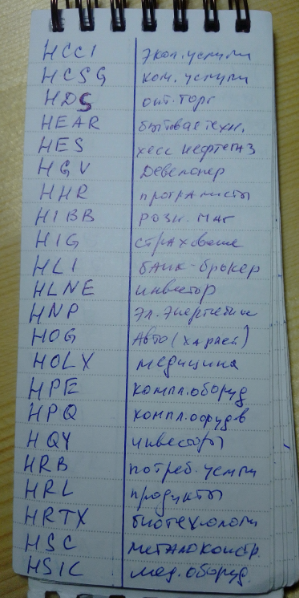 HCCI экол. услуги
HCSG ком. услуги
HDS опт. торг
HEAR бытовая техн.
HES хесс нефтегаз
HGV Девелопер
HHR програмисты
HIBB розн. маг
HIG страхование
HLI банк-брокер
HLNE инвестор
HNP эл. энергетик
HOG Авто (харлей)
HOLX медицина
HPE компл. оборуд
HPQ компл.
HQY инвесторы
HRB потреб. услуги
HRL продукты
HRTX биотехнологи
HSC металоконстр.
HSIC мед. оборуд.